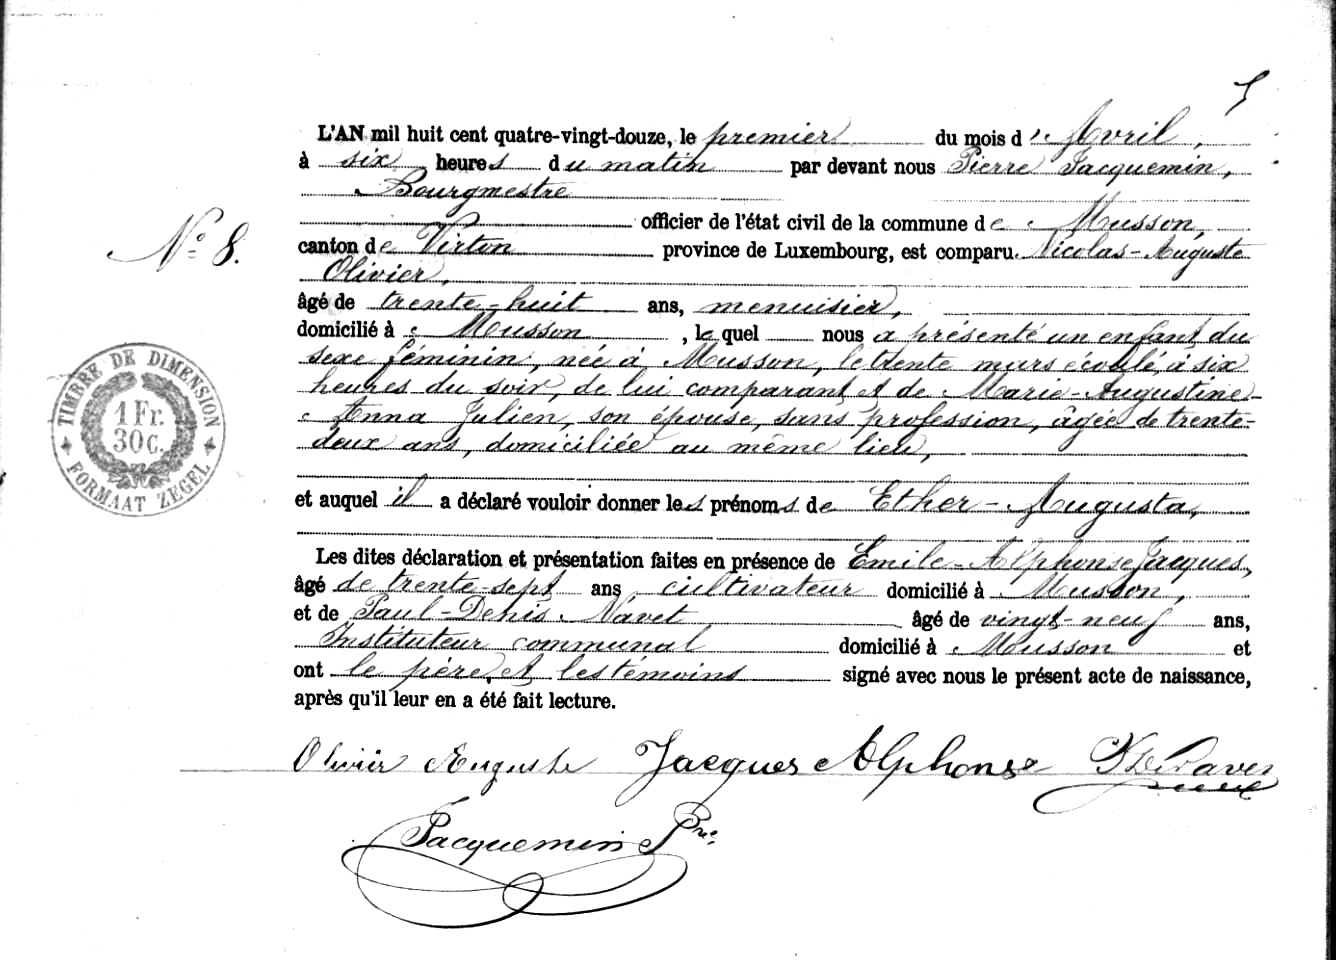 5
L'AN mil huit cent quatre-vingt-douze, le premier du mois d'Avril,
à six heures du matin par devant nous Pierre Jacquemin,
Bourgmestre
officier de l'état civil de la commune de Musson,
N° 8.
canton de Virton province de Luxembourg, est comparu Nicolas-Auguste
Olivier,
âgé de trente-huit ans, menuisier,
domicilié à Musson, lequel nous a présenté un enfant du
sexe féminin, née à Musson, le trente mars écoulé, à six
heures du soir, de lui comparant et de Marie-Augustine-
Anna Julien, son épouse, sans profession, âgée de trente-
deux ans, domiciliée au même lieu,
TIMBRE DE DIMENSION
1 Fr.
30 C.
FORMAAT ZEGEL
et auquel il a déclaré vouloir donner les prénoms de Ether-Augusta,
Les dites déclaration et présentation faites en présence de Emile-Alphonse Jacques,
âgé de trente-sept ans, cultivateur domicilié à Musson,
et de Paul-Denis Navet âgé de vingt-neuf ans,
Instituteur communal domicilié à Musson et
ont le père et les témoins signé avec nous le présent acte de naissance,
après qu'il leur en a été fait lecture.
Olivier Auguste Jacques Alphonse
Jacquemin Pre.